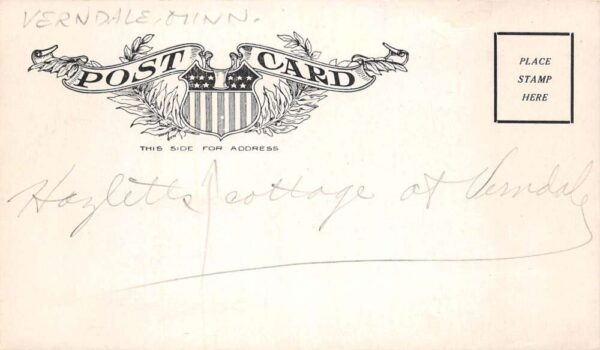 VERNDALE, MINN.
POST CARD
PLACE
STAMP
HERE
THIS SIDE FOR ADDRESS
Hazletts cottage at Verndale